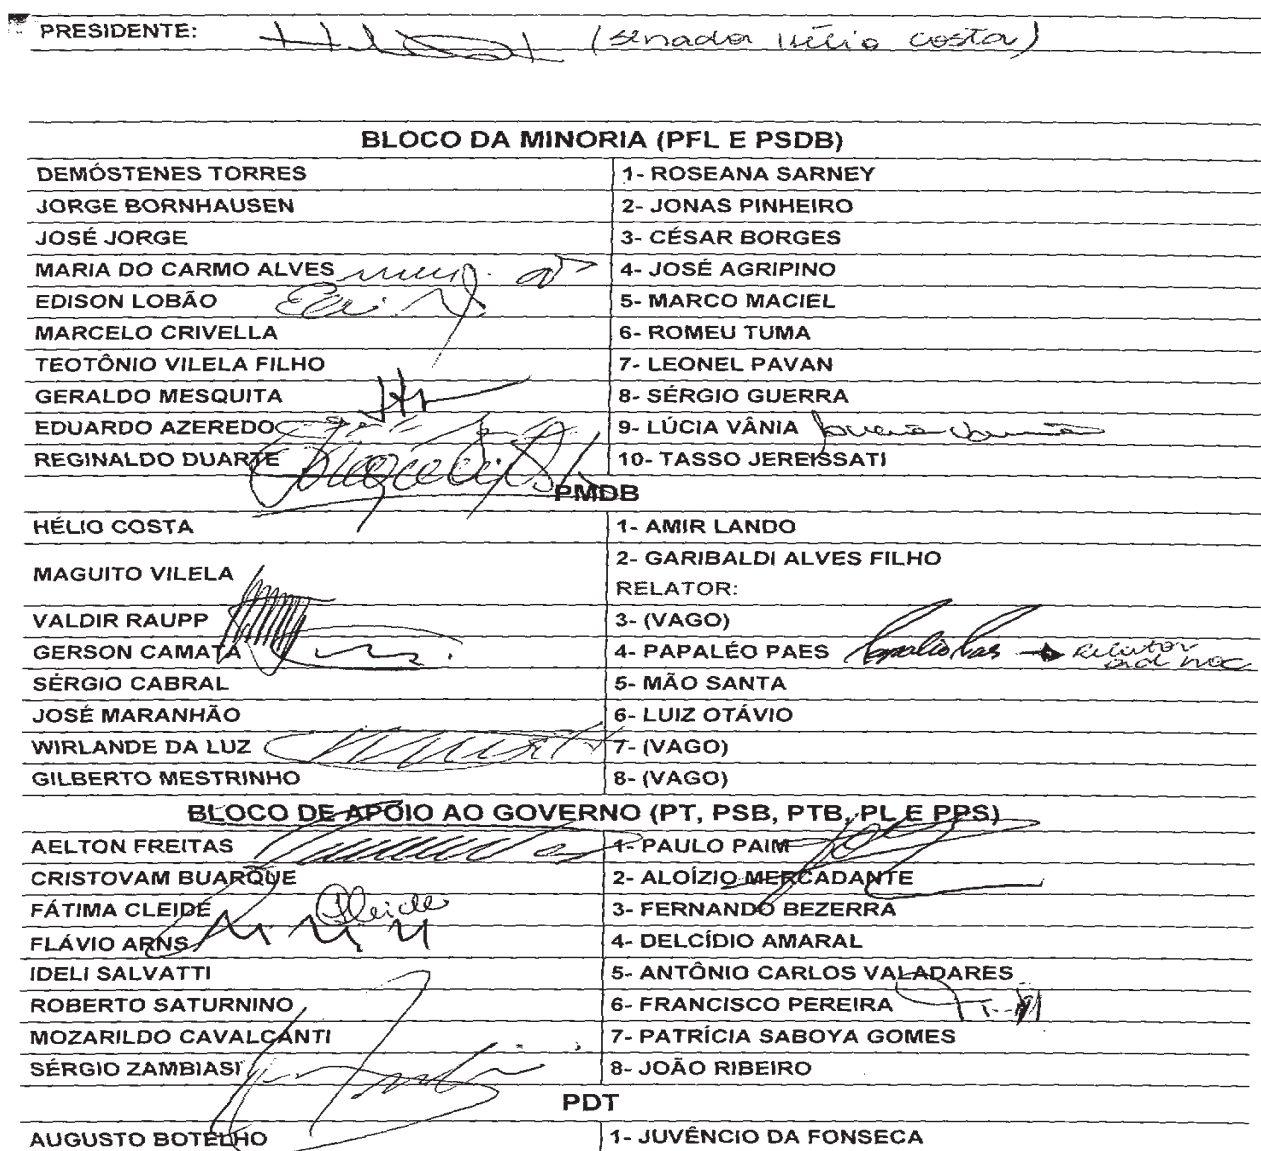 PRESIDENTE: (senador Hélio Costa)
BLOCO DA MINORIA (PFL E PSDB)
DEMÓSTENES TORRES 1- ROSEANA SARNEY
JORGE BORNHAUSEN 2- JONAS PINHEIRO
JOSÉ JORGE 3- CÉSAR BORGES
MARIA DO CARMO ALVES 4- JOSÉ AGRIPINO
EDISON LOBÃO 5- MARCO MACIEL
MARCELO CRIVELLA 6- ROMEU TUMA
TEOTÔNIO VILELA FILHO 7- LEONEL PAVAN
GERALDO MESQUITA 8- SÉRGIO GUERRA
EDUARDO AZEREDO 9- LÚCIA VÂNIA
REGINALDO DUARTE 10- TASSO JEREISSATI
PMDB
HÉLIO COSTA 1- AMIR LANDO
MAGUITO VILELA 2- GARIBALDI ALVES FILHO
RELATOR:
VALDIR RAUPP 3- (VAGO)
GERSON CAMATA 4- PAPALÉO PAES Papaléo Paes → Relator
ad hoc
SÉRGIO CABRAL 5- MÃO SANTA
JOSÉ MARANHÃO 6- LUIZ OTÁVIO
WIRLANDE DA LUZ 7- (VAGO)
GILBERTO MESTRINHO 8- (VAGO)
BLOCO DE APOIO AO GOVERNO (PT, PSB, PTB, PL E PPS)
AELTON FREITAS 1- PAULO PAIM
CRISTOVAM BUARQUE 2- ALOÍZIO MERCADANTE
FÁTIMA CLEIDE Cleide 3- FERNANDO BEZERRA
FLÁVIO ARNS 4- DELCÍDIO AMARAL
IDELI SALVATTI 5- ANTÔNIO CARLOS VALADARES
ROBERTO SATURNINO 6- FRANCISCO PEREIRA
MOZARILDO CAVALCANTI 7- PATRÍCIA SABOYA GOMES
SÉRGIO ZAMBIASI 8- JOÃO RIBEIRO
PDT
AUGUSTO BOTELHO 1- JUVÊNCIO DA FONSECA